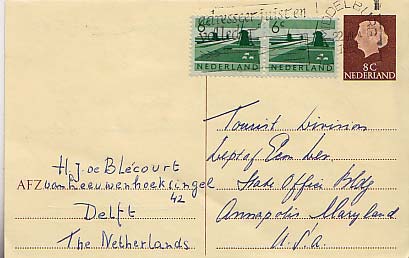 adresseer juist en
MIDDELBU
6c 6c
NEDERLAND NEDERLAND
8C
NEDERLAND
H.J. de Blécourt
AFZ van Leeuwenhoeksingel
42
Delft
The Netherlands
Tourist Division
Dept of Econ Dev.
State Office Bldg
Annapolis Maryland
U.S.A.